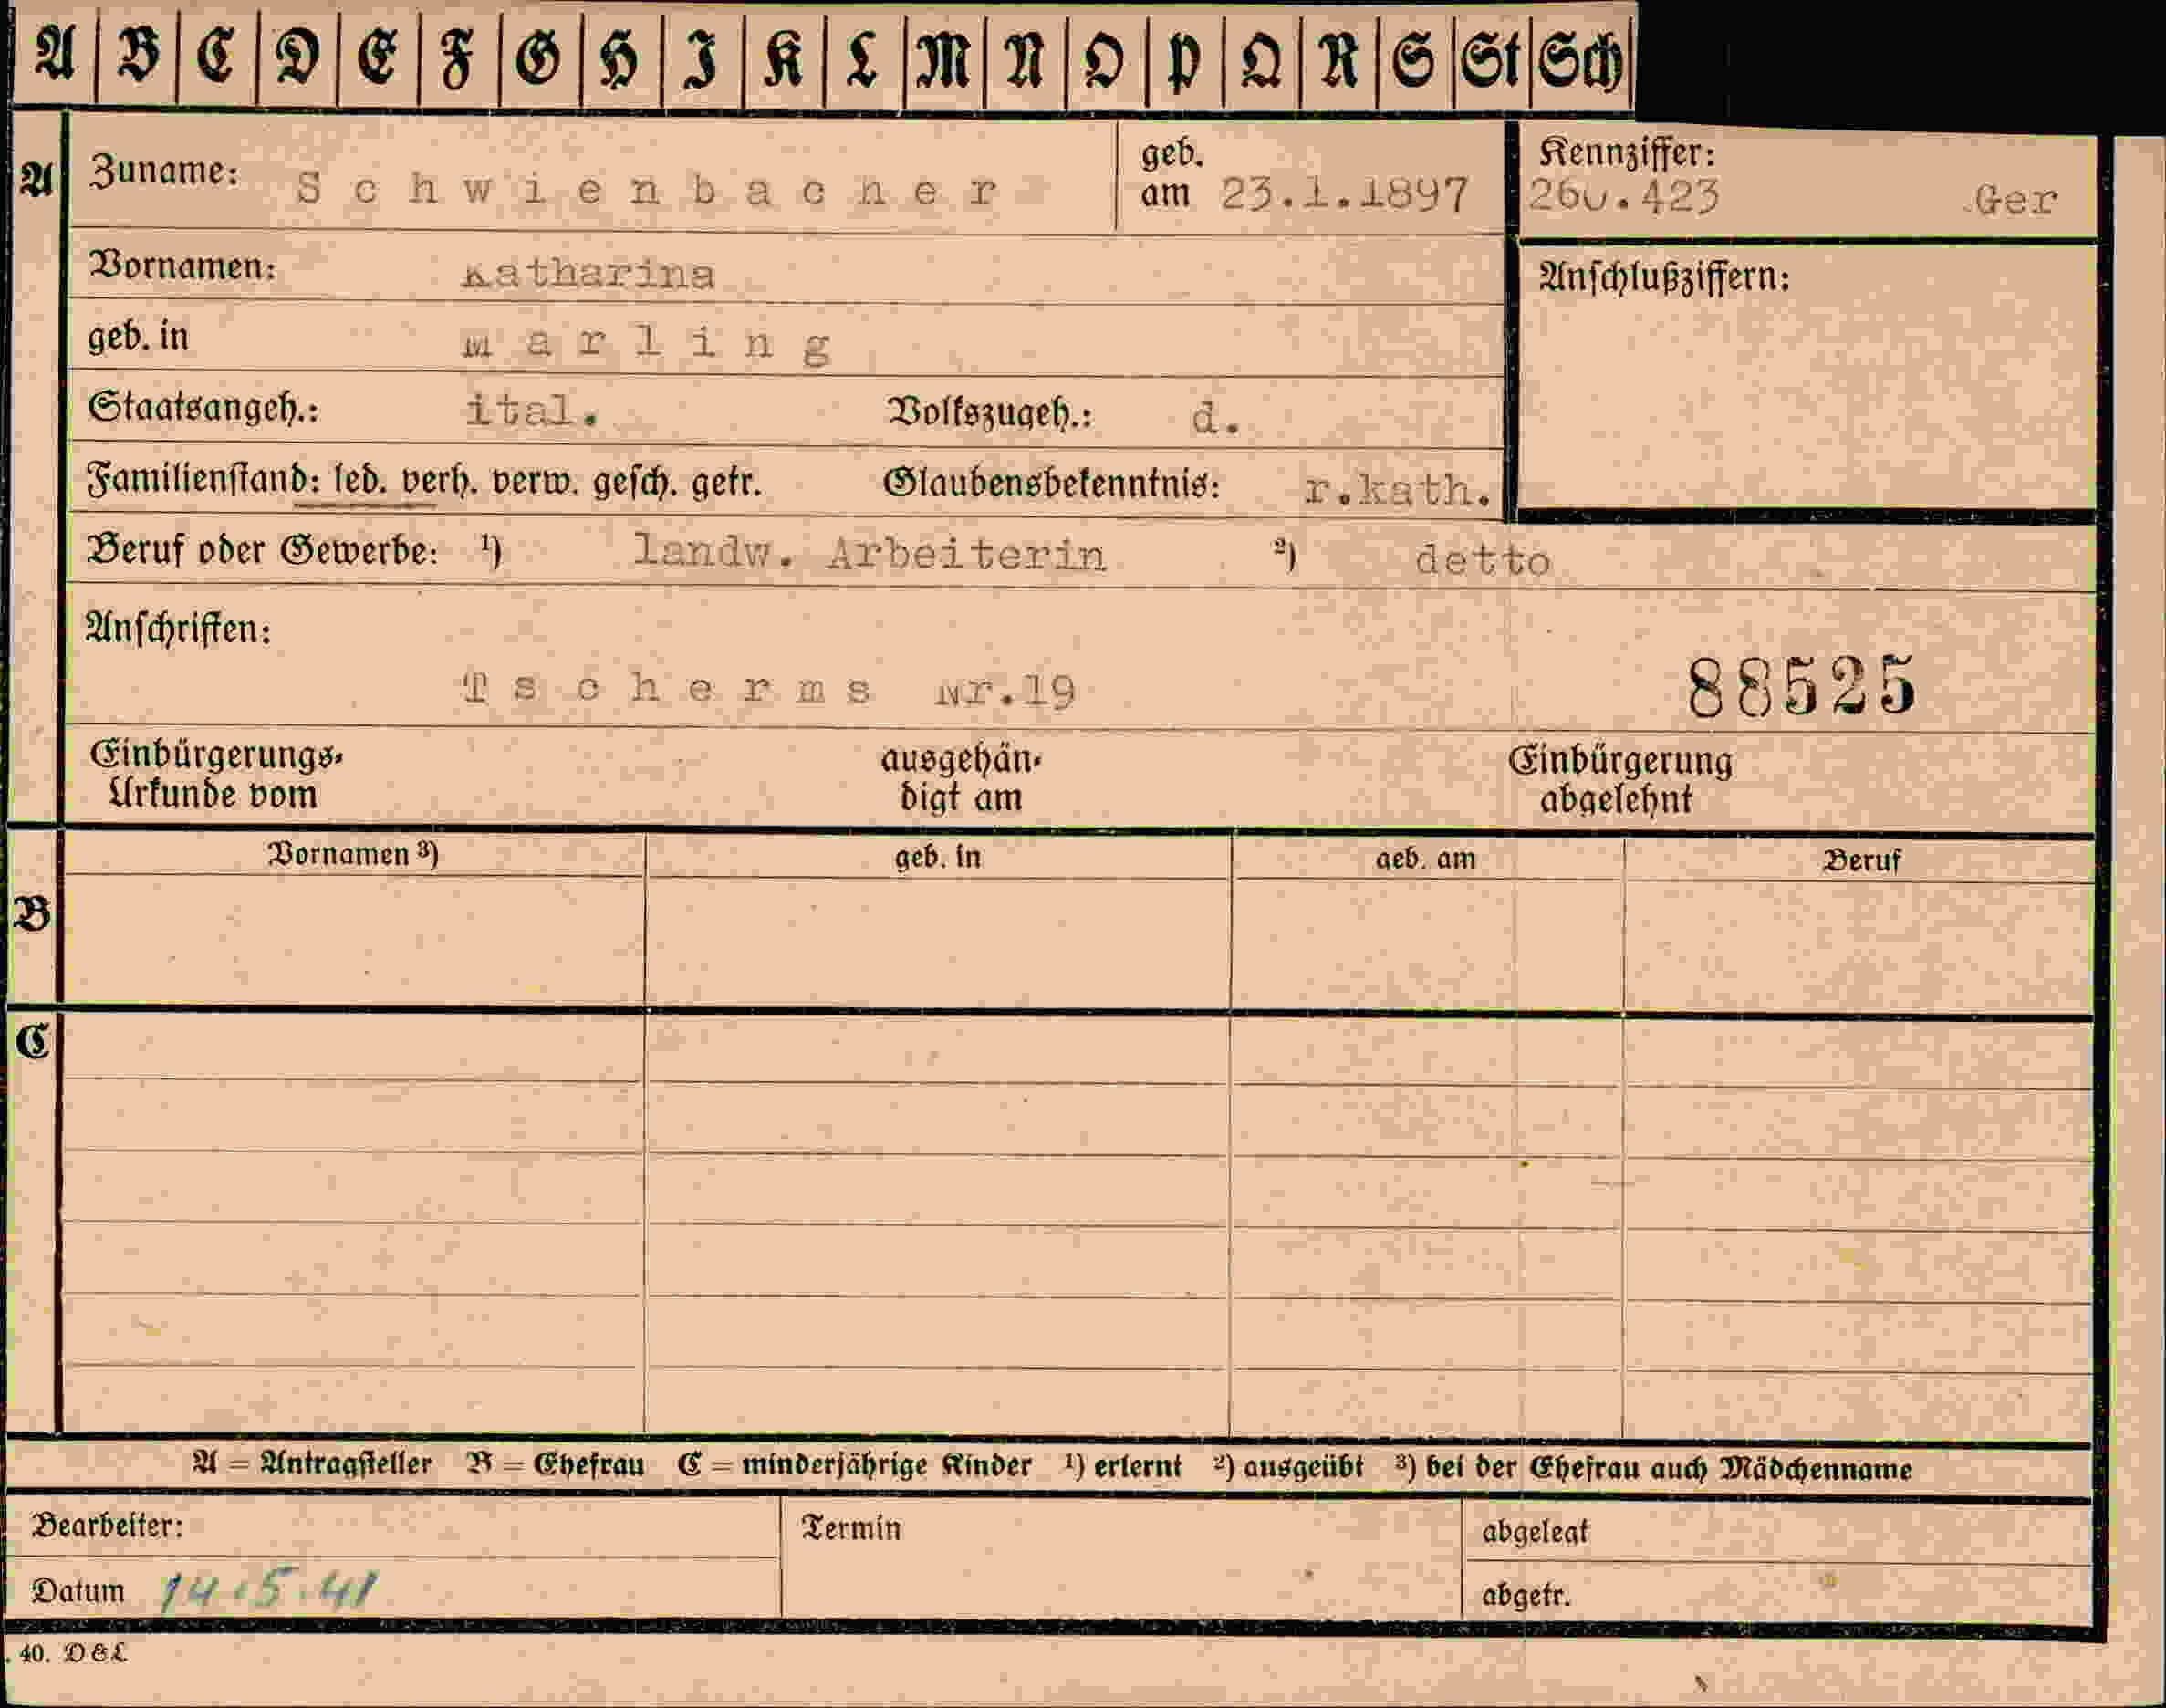 A B C D E F G H I K L M N O P Q R S St Sch
A Zuname: Schwienbacher geb. am 23.1.1897 Kennziffer: 260.423 Ger
Vornamen: Katharina Anschlußziffern:
geb. in Marling
Staatsangeh.: ital. Volkszugeh.: d.
Familienstand: led. verh. verw. gesch. getr. Glaubensbekenntnis: r.kath.
Beruf oder Gewerbe: ¹) landw. Arbeiterin ²) detto
Anschriften:
Tscherms Nr.19 88525
Einbürgerungs- ausgehän- Einbürgerung
Urkunde vom digt am abgelehnt
Vornamen ³) geb. in geb. am Beruf
B
C
A = Antragsteller B = Ehefrau C = minderjährige Kinder ¹) erlernt ²) ausgeübt ³) bei der Ehefrau auch Mädchenname
Bearbeiter: Termin abgelegt
Datum 14.5.41 abgetr.
. 40. D&L